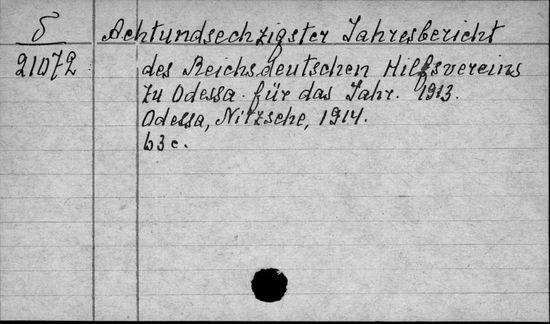 δ Achtundsechzigster Jahresbericht
21072 des Reichsdeutschen Hilfsvereins
zu Odessa für das Jahr. 1913.
Odessa, Nitzsche, 1914.
63 c.